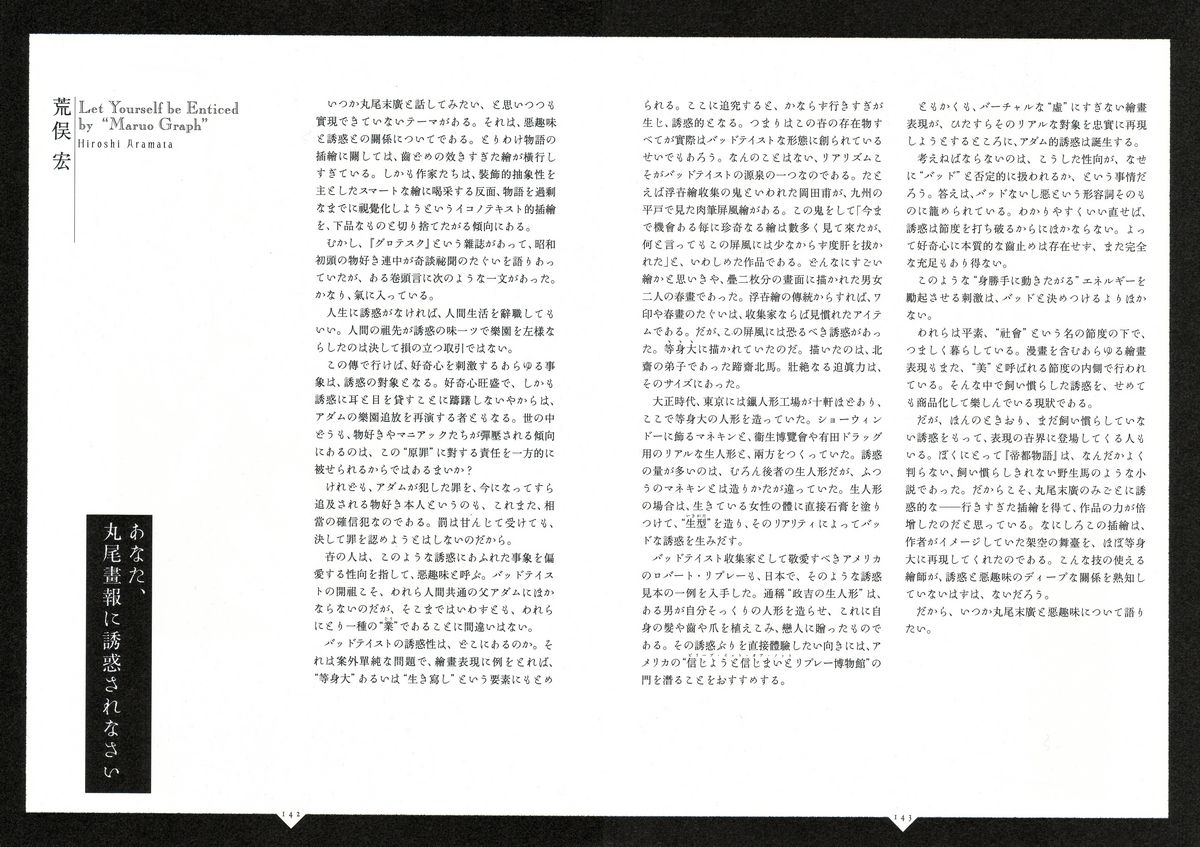 荒俣 宏
Let Yourself be Enticed
by “Maruo Graph”
Hiroshi Aramata
あなた、
丸尾畫報に誘惑されなさい
いつか丸尾末廣と話してみたい、と思いつつも
實現できていないテーマがある。それは、悪趣味
と誘惑との關係についてである。とりわけ物語の
插繪に關しては、齒どめの效きすぎた繪が横行し
すぎている。しかも作家たちは、裝飾的抽象性を
主としたスマートな繪に喝采する反面、物語を過剩
なまでに視覺化しようというイコノテキスト的插繪
を、下品なものと切り捨てたがる傾向にある。
むかし、『グロテスク』という雜誌があって、昭和
初頭の物好き連中が奇談祕聞のたぐいを語りあっ
ていたが、ある卷頭言に次のような一文があった。
かなり、氣に入っている。
人生に誘惑がなければ、人間生活を辭職しても
いい。人間の祖先が誘惑の味一ツで樂園を左樣な
らしたのは決して損の立つ取引ではない。
この傳で行けば、好奇心を刺激するあらゆる事
象は、誘惑の對象となる。好奇心旺盛で、しかも
誘惑に耳と目を貸すことに躊躇しないやからは、
アダムの樂園追放を再演する者ともなる。世の中
どうも、物好きやマニアックたちが彈壓される傾向
にあるのは、この“原罪”に對する責任を一方的に
被せられるからではあるまいか？
けれども、アダムが犯した罪を、今になってすら
追及される物好き本人というのも、これまた、相
當の確信犯なのである。罰は甘んじて受けても、
決して罪を認めようとはしないのだから。
世の人は、このような誘惑にあふれた事象を偏
愛する性向を指して、悪趣味と呼ぶ。バッドテイス
トの開祖こそ、われら人間共通の父アダムにほか
ならないのだが、そこまではいわずとも、われら
にとり一種の“業”であることに間違いはない。
バッドテイストの誘惑性は、どこにあるのか。そ
れは案外單純な問題で、繪畫表現に例をとれば、
“等身大”あるいは“生き寫し”という要素にもとめ
142
られる。ここに追究すると、かならず行きすぎが
生じ、誘惑的となる。つまりはこの世の存在物す
べてが實際はバッドテイストな形態に創られている
せいでもあろう。なんのことはない、リアリズムこ
そがバッドテイストの源泉の一つなのである。たと
えば浮世繪收集の鬼といわれた岡田甫が、九州の
平戸で見た肉筆屏風繪がある。この鬼をして「今ま
で機會ある毎に珍奇なる繪は數多く見て來たが、
何と言ってもこの屏風には少なからず度肝を抜か
れた」と、いわしめた作品である。どんなにすごい
繪かと思いきや、疊二枚分の畫面に描かれた男女
二人の春畫であった。浮世繪の傳統からすれば、ワ
印や春畫のたぐいは、收集家ならば見慣れたアイテ
ムである。だが、この屏風には恐るべき誘惑があっ
た。等身大に描かれていたのだ。描いたのは、北
齋の弟子であった蹄齋北馬。壯絶なる迫眞力は、
そのサイズにあった。
大正時代、東京には蠟人形工場が十軒ほどあり、
ここで等身大の人形を造っていた。ショーウィン
ドーに飾るマネキンと、衞生博覽會や有田ドラッグ
用のリアルな生人形と、兩方をつくっていた。誘惑
の量が多いのは、むろん後者の生人形だが、ふつ
うのマネキンとは造りかたが違っていた。生人形
の場合は、生きている女性の體に直接石膏を塗り
つけて、“生型”を造り、そのリアリティによってバッ
ドな誘惑を生みだす。
バッドテイスト收集家として敬愛すべきアメリカ
のロバート・リプレーも、日本で、そのような誘惑
見本の一例を入手した。通稱“政吉の生人形”は、
ある男が自分そっくりの人形を造らせ、これに自
身の髮や齒や爪を植えこみ、戀人に贈ったもので
ある。その誘惑ぶりを直接體驗したい向きには、ア
メリカの“信じようと信じまいとリプレー博物館”の
門を潛ることをおすすめする。
ともかくも、バーチャルな“虛”にすぎない繪畫
表現が、ひたすらそのリアルな對象を忠實に再現
しようとするところに、アダム的誘惑は誕生する。
考えねばならないのは、こうした性向が、なぜ
に“バッド”と否定的に扱われるか、という事情だ
ろう。答えは、バッドないし悪という形容詞そのも
のに籠められている。わかりやすくいい直せば、
誘惑は節度を打ち破るからにほかならない。よっ
て好奇心に本質的な齒止めは存在せず、また完全
な充足もあり得ない。
このような“身勝手に動きたがる”エネルギーを
勵起させる刺激は、バッドと決めつけるよりほか
ない。
われらは平素、“社會”という名の節度の下で、
つましく暮らしている。漫畫を含むあらゆる繪畫
表現もまた、“美”と呼ばれる節度の内側で行われ
ている。そんな中で飼い慣らした誘惑を、せめて
も商品化して樂しんでいる現狀である。
だが、ほんのときおり、まだ飼い慣らしていな
い誘惑をもって、表現の世界に登場してくる人も
いる。ぼくにとって『帝都物語』は、なんだかよく
判らない、飼い慣らしきれない野生馬のような小
説であった。だからこそ、丸尾末廣のみごとに誘
惑的な――行きすぎた插繪を得て、作品の力が倍
增したのだと思っている。なにしろこの插繪は、
作者がイメージしていた架空の舞臺を、ほぼ等身
大に再現してくれたのである。こんな技の使える
繪師が、誘惑と悪趣味のディープな關係を熟知し
ていないはずは、ないだろう。
だから、いつか丸尾末廣と悪趣味について語り
たい。
143